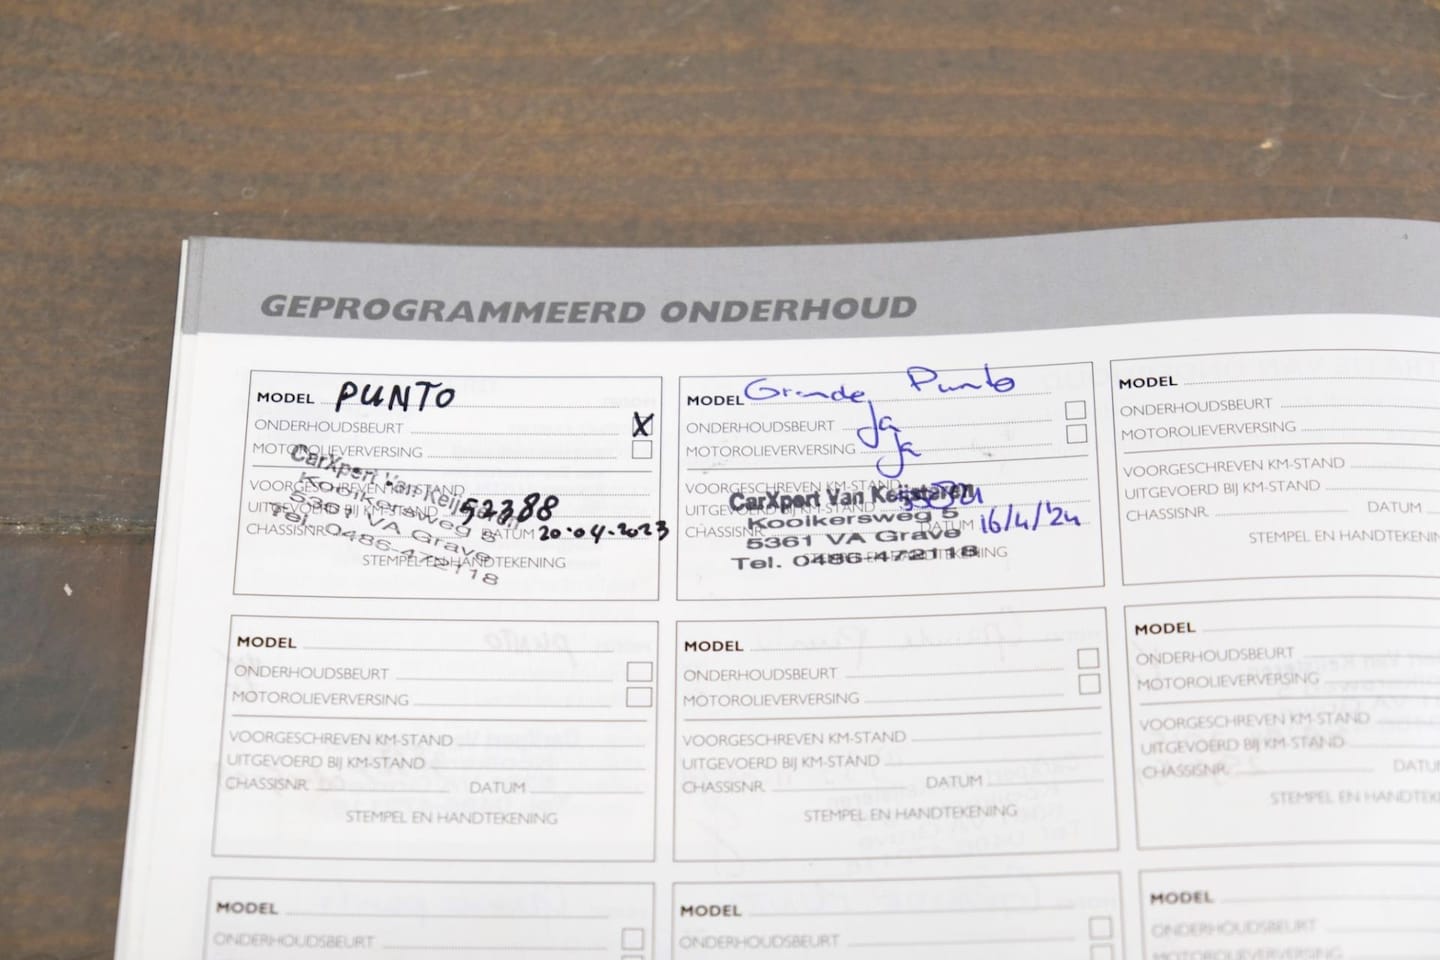 GEPROGRAMMEERD ONDERHOUD
MODEL PUNTO
ONDERHOUDSBEURT X
MOTOROLIEVERVERSING
VOORGESCHREVEN KM-STAND
UITGEVOERD BIJ KM-STAND 52388
CHASSISNR. DATUM 20·04·2023
STEMPEL EN HANDTEKENING
CarXpert Van Keijsteren
Kooikersweg 5
5361 VA Grave
Tel. 0486-472118
MODEL Grande Punto
ONDERHOUDSBEURT Ja
MOTOROLIEVERVERSING Ja
VOORGESCHREVEN KM-STAND
UITGEVOERD BIJ KM-STAND
CHASSISNR. DATUM 16/4/'24
STEMPEL EN HANDTEKENING
CarXpert Van Keijsteren
Kooikersweg 5
5361 VA Grave
Tel. 0486-472118
MODEL
ONDERHOUDSBEURT
MOTOROLIEVERVERSING
VOORGESCHREVEN KM-STAND
UITGEVOERD BIJ KM-STAND
CHASSISNR. DATUM
STEMPEL EN HANDTEKENIN
MODEL
ONDERHOUDSBEURT
MOTOROLIEVERVERSING
VOORGESCHREVEN KM-STAND
UITGEVOERD BIJ KM-STAND
CHASSISNR. DATUM
STEMPEL EN HANDTEKENING
MODEL
ONDERHOUDSBEURT
MOTOROLIEVERVERSING
VOORGESCHREVEN KM-STAND
UITGEVOERD BIJ KM-STAND
CHASSISNR. DATUM
STEMPEL EN HANDTEKENING
MODEL
ONDERHOUDSBEURT
MOTOROLIEVERVERSING
VOORGESCHREVEN KM-STAND
UITGEVOERD BIJ KM-STAND
CHASSISNR. DATU
STEMPEL EN HANDTEK
MODEL
ONDERHOUDSBEURT
MODEL
ONDERHOUDSBEURT
MODEL
ONDERHOUDSBEURT
MOTOROLIEVERVERSING